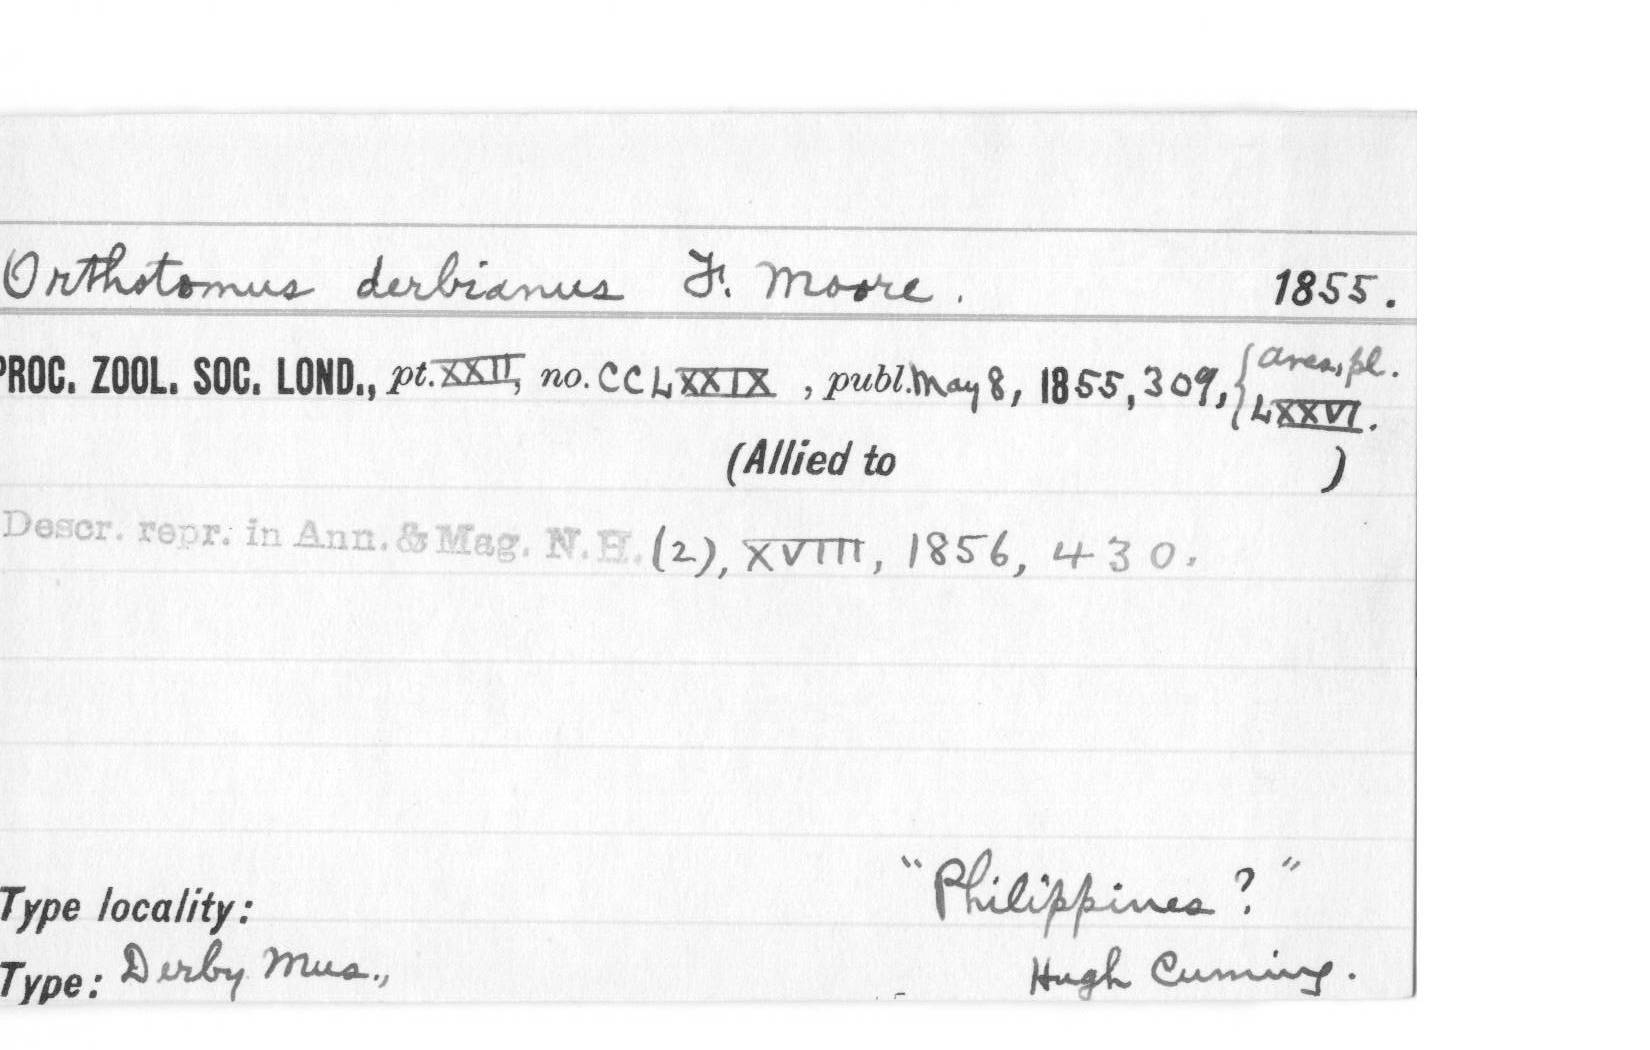 Orthotomus derbianus F. Moore. 1855.
PROC. ZOOL. SOC. LOND., pt. XXII, no. CCLXXIX, publ. May 8, 1855, 309, {Aves, pl. LXXVI.
(Allied to )
Descr. repr. in Ann. & Mag. N. H. (2), XVIII, 1856, 430.
Type locality: "Philippines?"
Type: Derby Mus., Hugh Cuming.